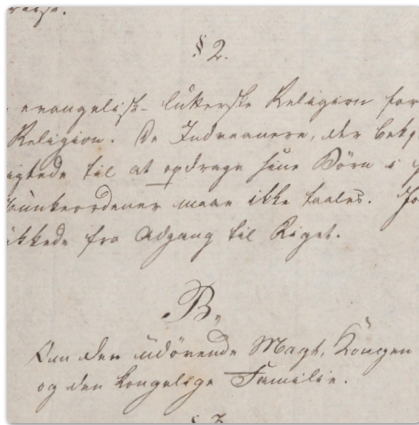 § 2.
evangelisk-lutterske Religion for
Religion. De Indvaanere, der bekj
igtede til at opdrage sine Börn i
unkeordener maae ikke taales. Jö
ukkede fra Adgang til Riget.
B.,
Om den udövende Magt, Kongen
og den kongelige Familie.
§ 3